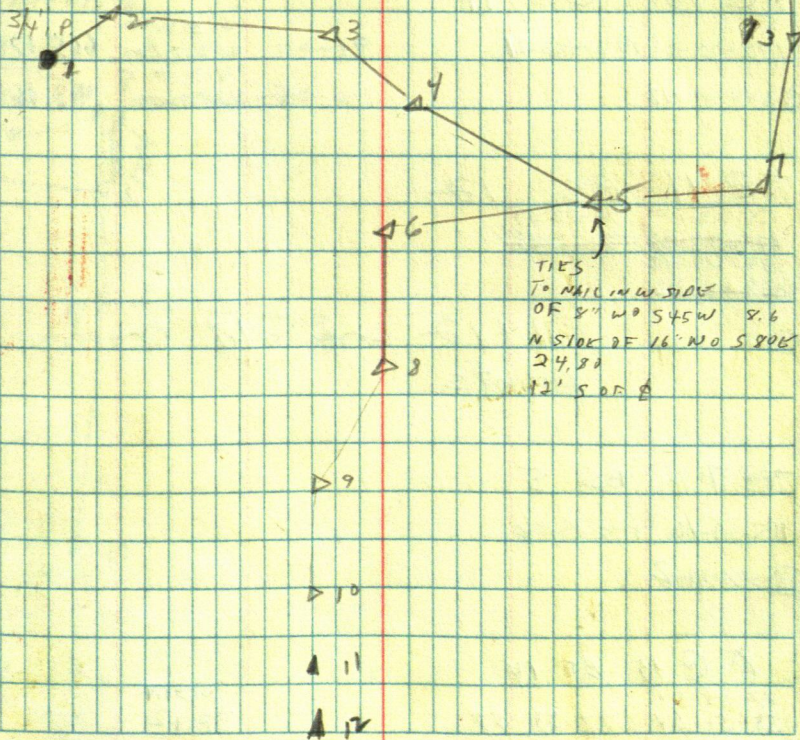 3/4" I.P.
1
2
3
4
13
7
5
6
TIES
TO NAIL IN W SIDE
OF 8" WO S45W 8.6
N SIDE OF 16" WO S80E
24.80
12' S OF ℄
8
9
10
11
12